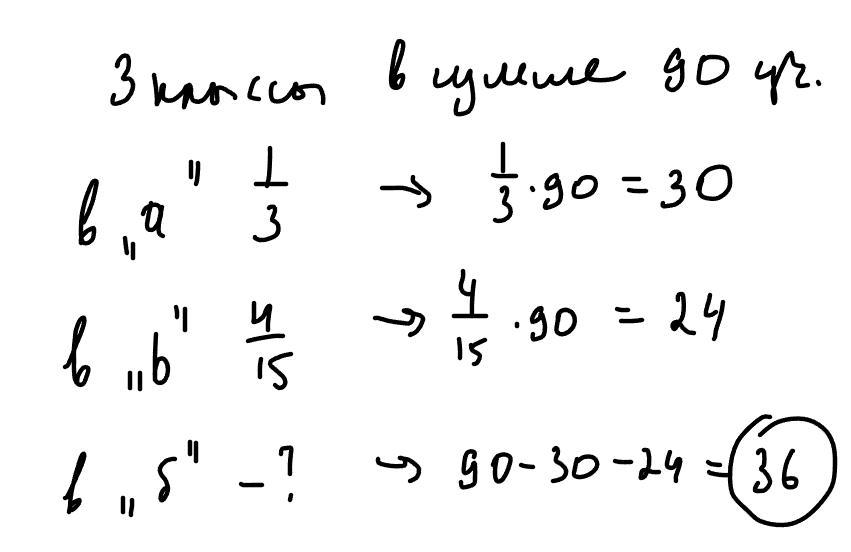 3 классы в сумме 90 уч.
в „а" 1/3 → 1/3 · 90 = 30
в „b" 4/15 → 4/15 · 90 = 24
в „б" – ? → 90 - 30 - 24 = 36